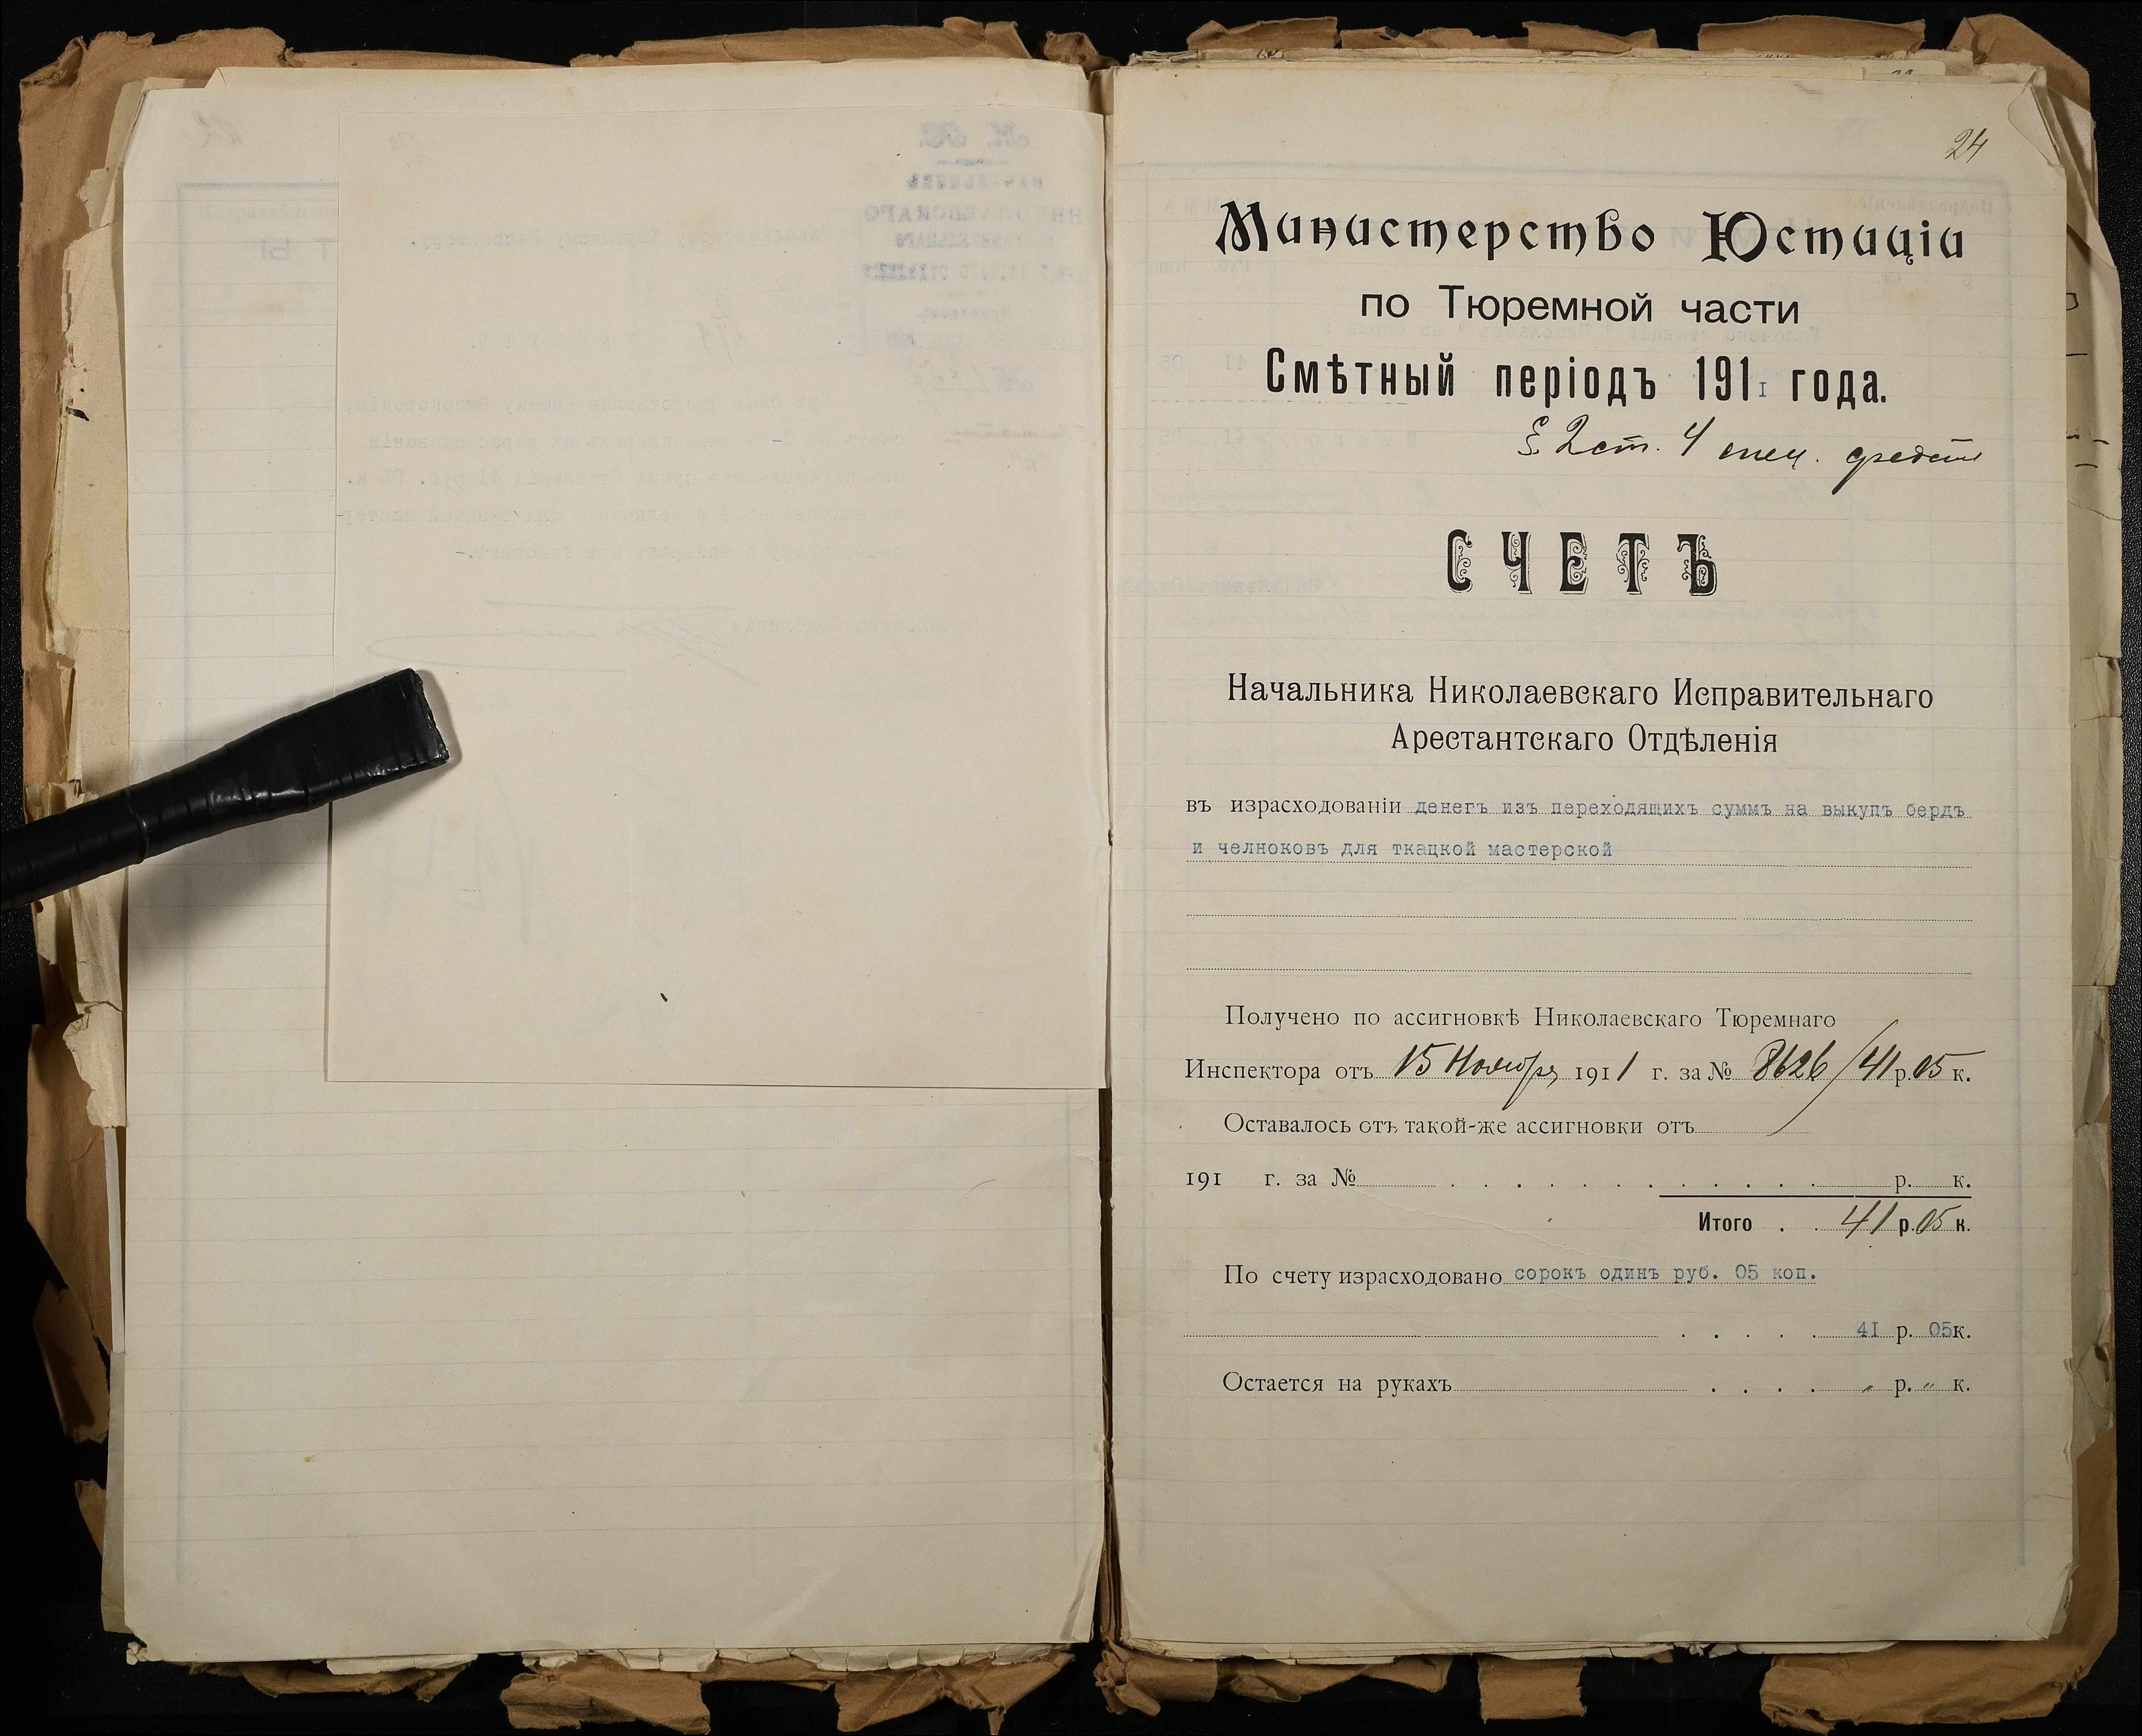 24
Министерство Юстиціи
по Тюремной части
Смѣтный періодъ 1911 года.
§ 2 ст. 4 спец. средств
СЧЕТЪ
Начальника Николаевскаго Исправительнаго
Арестантскаго Отдѣленія
въ израсходованіи денегъ изъ переходящихъ суммъ на выкупъ бердъ
и челноковъ для ткацкой мастерской
Получено по ассигновкѣ Николаевскаго Тюремнаго
Инспектора отъ 15 Ноября 1911 г. за № 8626 / 41 р. 05 к.
Оставалось отъ такой-же ассигновки отъ
191 г. за № . . . . . . . . . . . р. к.
Итого . . 41 р. 05 к.
По счету израсходовано сорокъ одинъ руб. 05 коп.
. . . . . 41 р. 05 к.
Остается на рукахъ . . . . " р. " к.